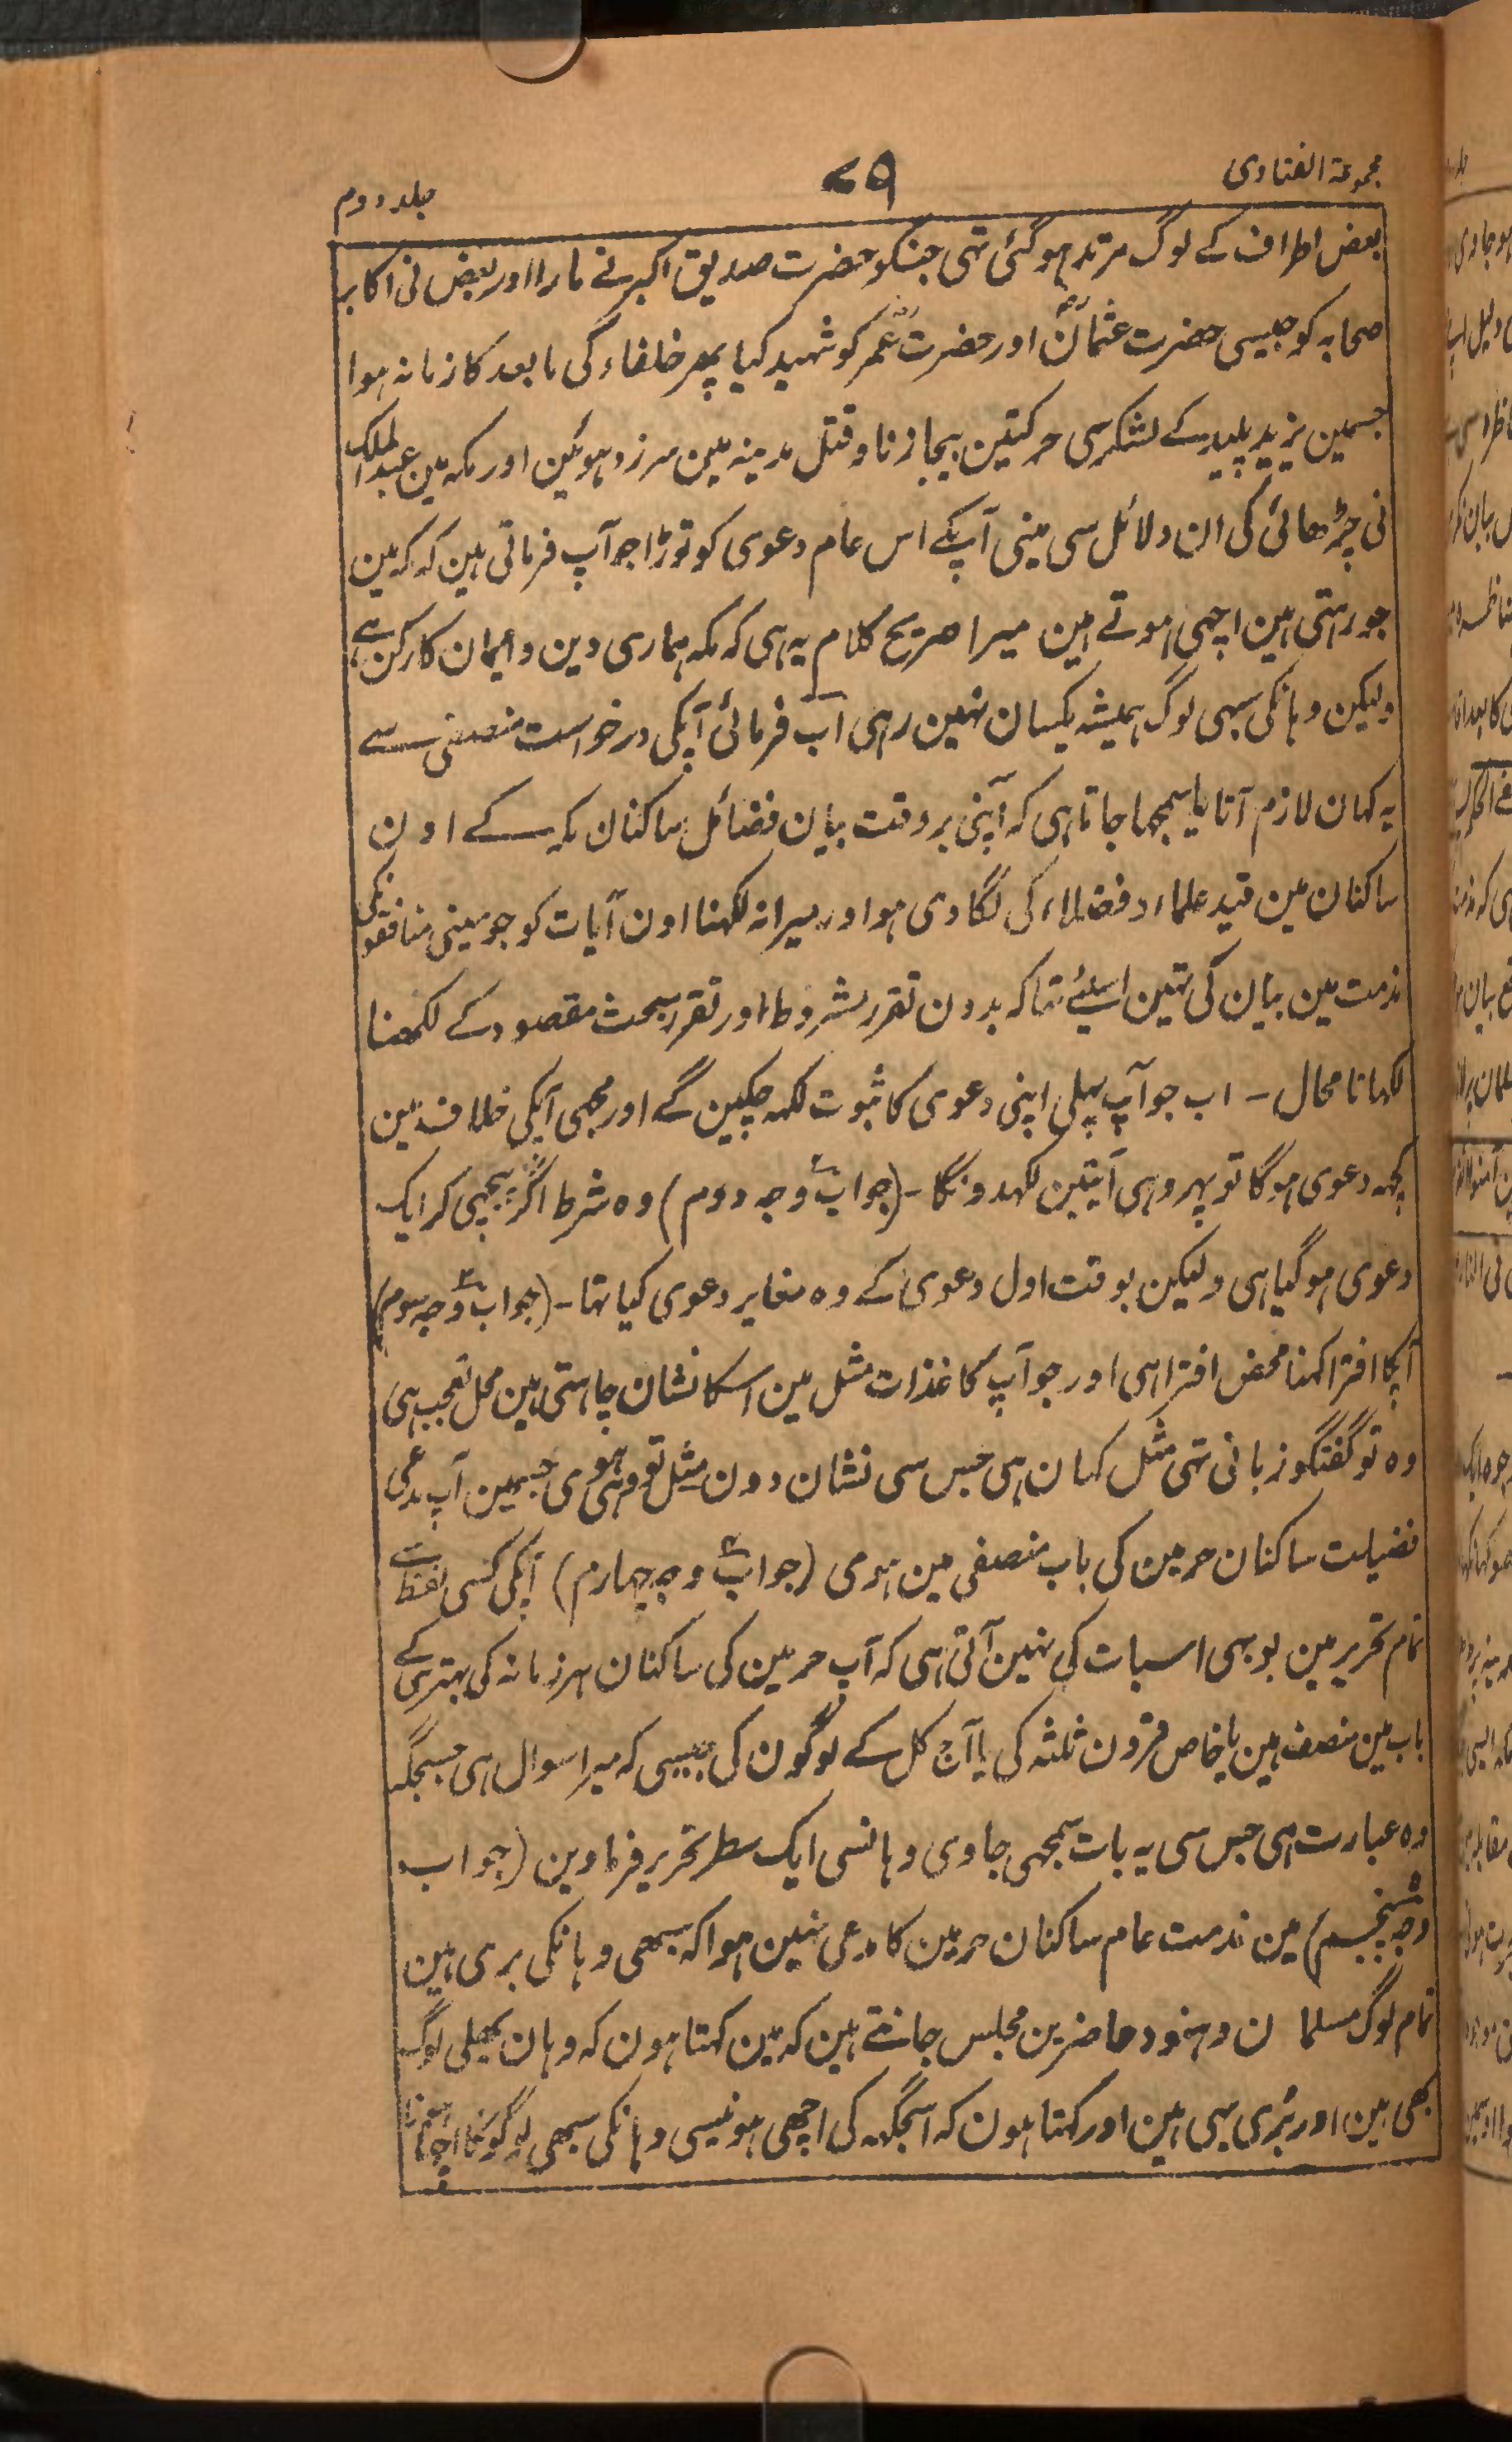 مجموعۃ الفتاوی
۷۹
جلد دوم
بعض اطراف کے لوگ مرتد ہو گئی تہی جنکو حضرت صدیق اکبر نے مارا اور بعض نی اکابر
صحابہ کو جیسی حضرت عثمانؓ اور حضرت عمرؓ کو شہید کیا پھر خلفاء کی ما بعد کا زمانہ ہوا
جسمین یزید پلید کے لشکر سی حرکتین بیجا زنا و قتل مدینہ مین سرزد ہوئین اور مکہ مین عبد الملک
نی چڑھائی کی ان دلائل سی مینی آپکے اس عام دعوی کو توڑا جو آپ فرماتی ہین کہ مکہ مین
جو رہتی ہین اچہی ہوتے ہین میرا صریح کلام یہ ہی کہ مکہ ہماری دین و ایمان کا رکن ہے
ولیکن وہانکی سبہی لوگ ہمیشہ یکسان نہین رہی اب فرمائی آپکی درخواست منصفی سے
یہ کہان لازم آتا یا سمجہا جاتا ہی کہ آپنی بر وقت بیان فضائل ساکنان مکہ کے اون
ساکنان مین قید علماء و فضلاء کی لگا دی ہو اور میرا نہ لکہنا اون آیات کو جو مینی منافقونکی
مذمت مین بیان کی تہین اسلئے تہا کہ بدون تقرر شروط اور تقرر بحث مقصود کے لکھنا
لکہانا محال - اب جو آپ پہلی اپنی دعوی کا ثبوت لکہ چکین گے اور مجہی آپکی خلاف مین
کچہ دعوی ہوگا تو پہر وہی آیتین لکہدونگا - (جواب وجہ دوم) وہ شرط اگر پیچہی کر ایک
دعوی ہو گیا ہی ولیکن بوقت اول دعوی کے وہ مغایر دعوی کیا تہا - (جواب وجہ سوم)
آپکا افترا کہنا محض افترا ہی اور جو آپ کاغذات مثل مین اسکا نشان چاہتی ہین محل تعجب ہی
وہ تو گفتگو زبانی تہی مثل کہان ہی جس سی نشان دون مثل تو وہی ہوی جسمین آپ مدعی
فضیلت ساکنان حرمین کی باب منصفی مین ہوی (جواب وجہ چہارم) آپکی کسی لفظ سے
تمام تحریر مین بو بہی اسبات کی نہین آتی ہی کہ آپ حرمین کی ساکنان ہر زمانہ کی بہتری کے
باب مین منصف ہین یا خاص قرون ثلثہ کی یا آج کل کے لوگون کی جیسی کہ میرا سوال ہی جسجگہ
وہ عبارت ہی جس سی یہ بات سمجہی جاوی وہانسی ایک سطر تحریر فرماوین (جواب
وجہ پنجم) مین مذمت عام ساکنان حرمین کا مدعی نہین ہوا کہ سبھی وہانکی بری ہین
تمام لوگ مسلمان و ہنود حاضرین مجلس جانتے ہین کہ مین کہتا ہون کہ وہان بھلی لوگ
بھی ہین اور بُری بہی ہین اور کہتا ہون کہ اسجگہہ کی اچھی ہونیسی وہانکی سبھی لوگونکا اچھا